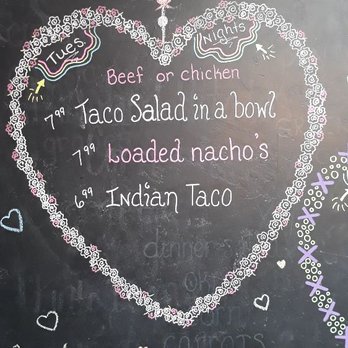 Tues Nights
Beef or chicken
7⁹⁹ Taco Salad in a bowl
7⁹⁹ Loaded nacho's
6⁹⁹ Indian Taco
dinner
carrots